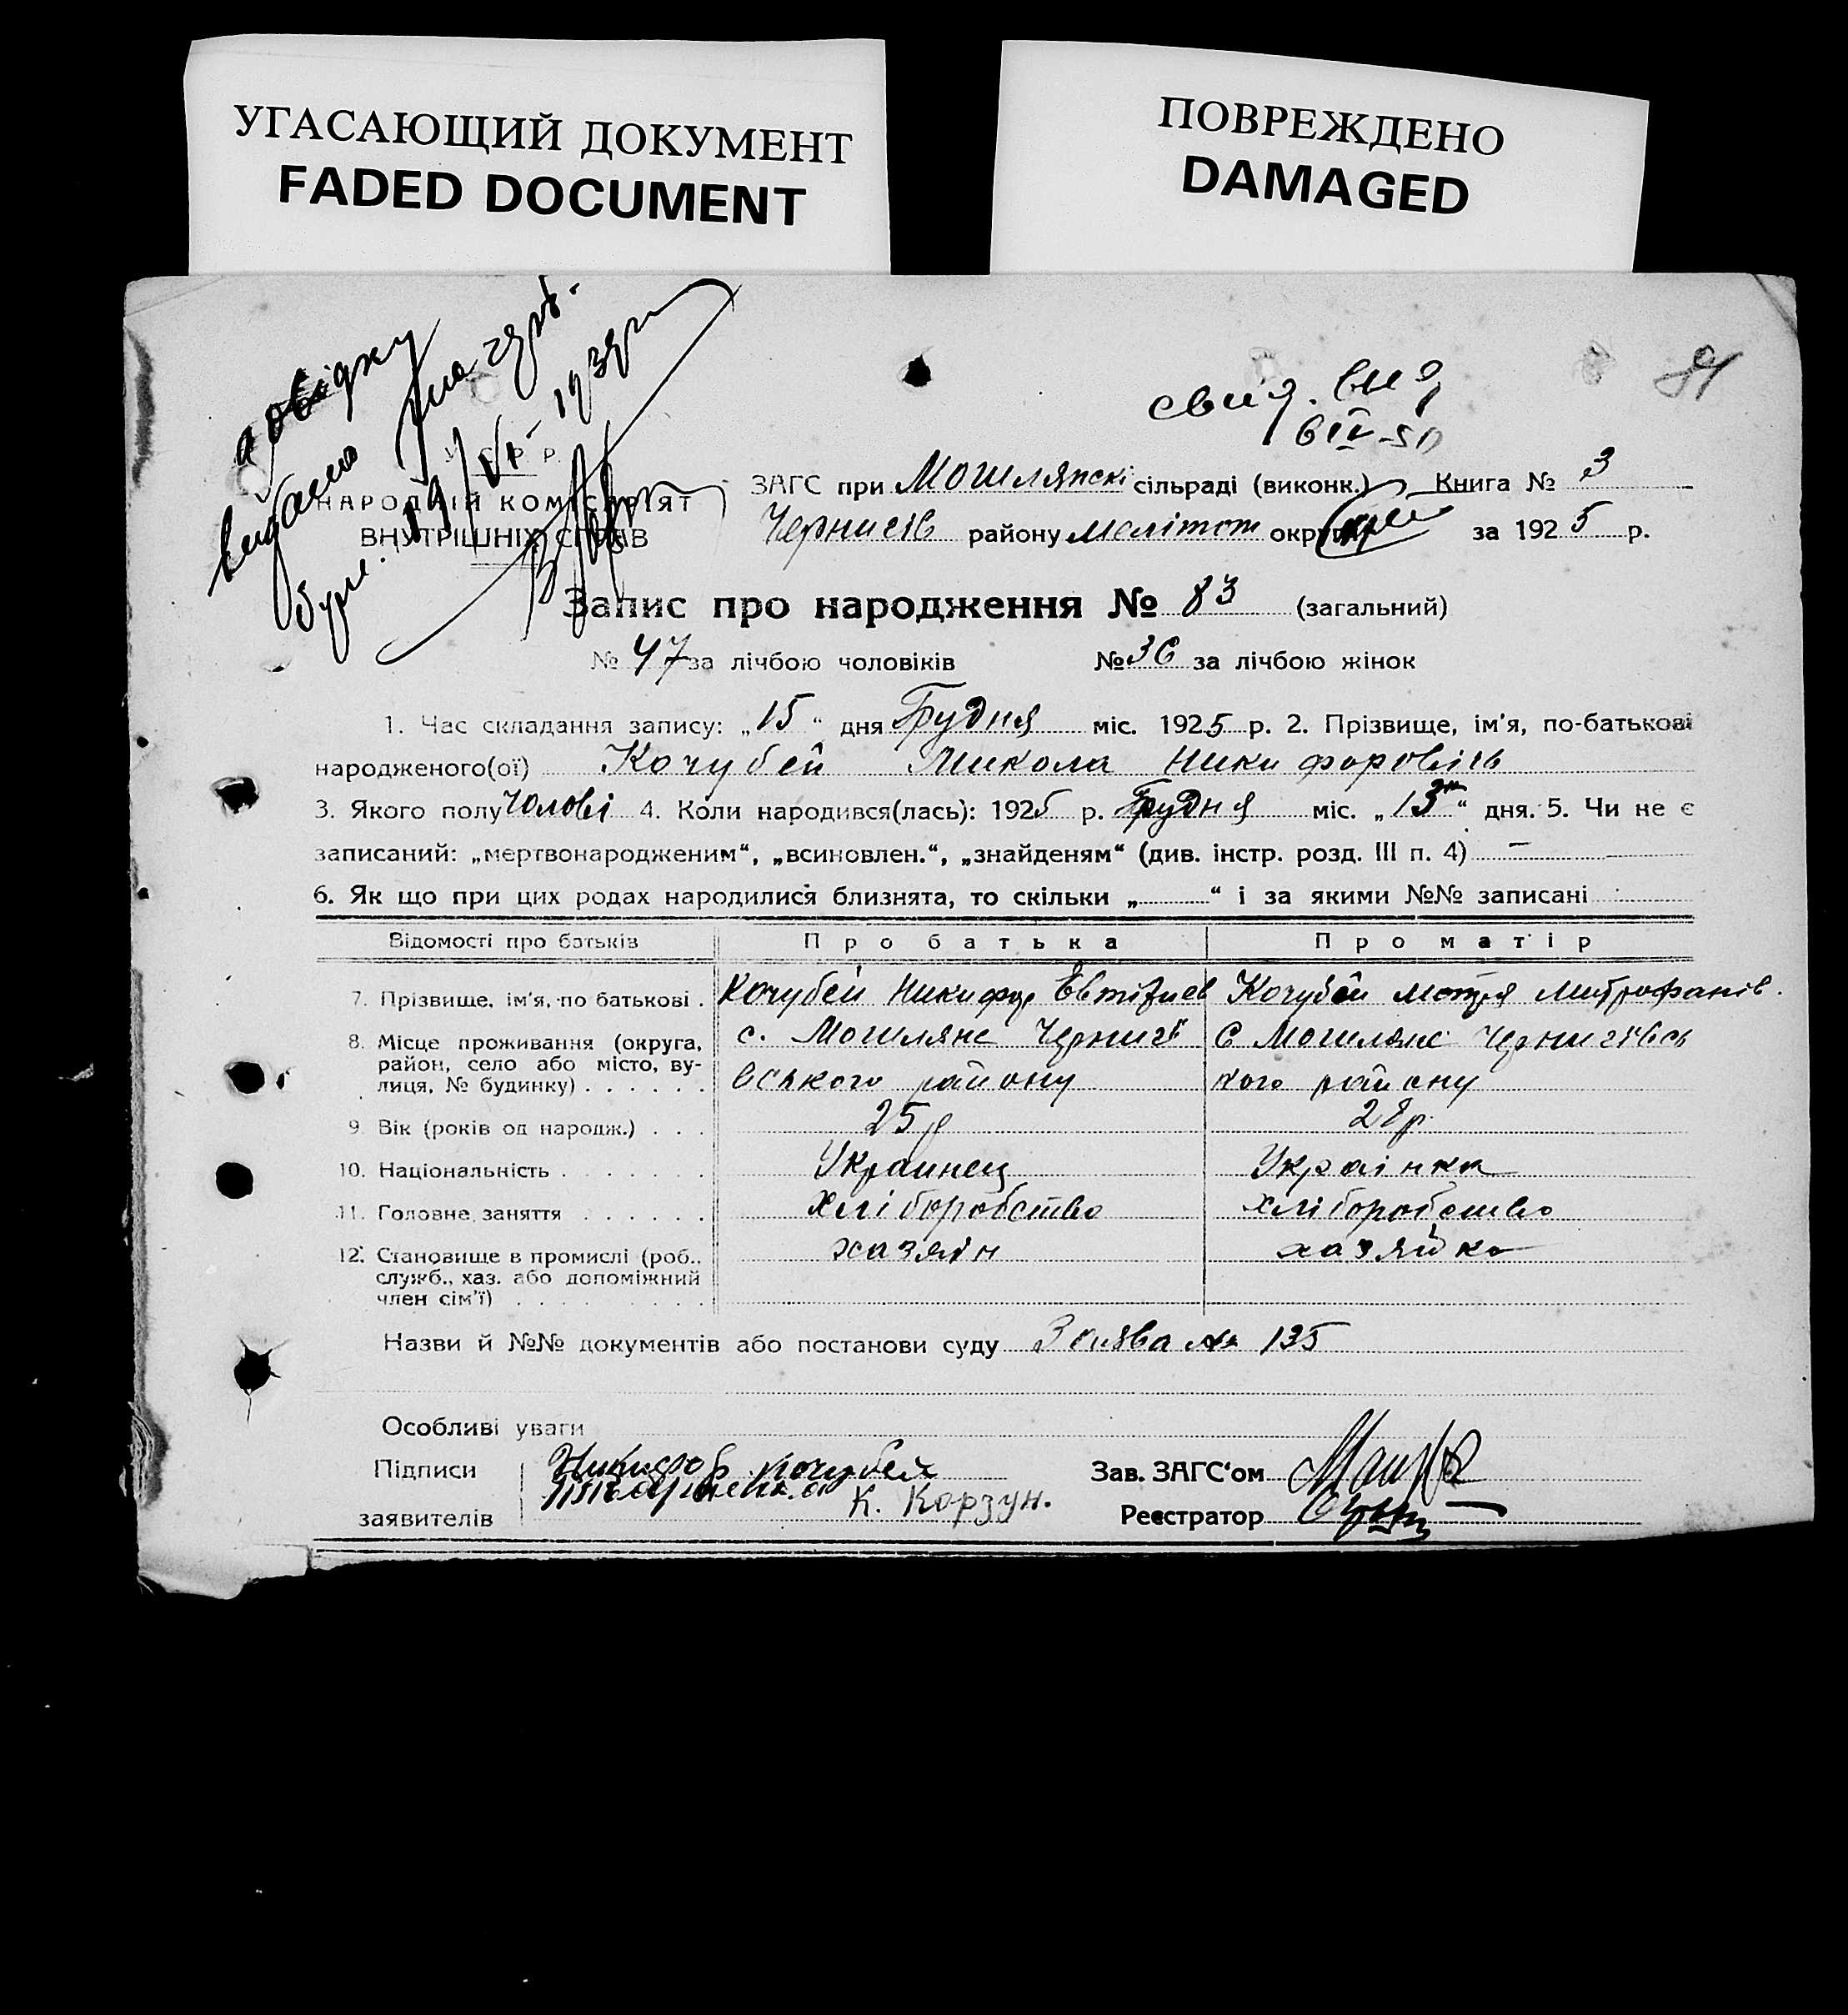 УГАСАЮЩИЙ ДОКУМЕНТ
FADED DOCUMENT
ПОВРЕЖДЕНО
DAMAGED
довідку
видано на
19/VI-
свид.
6 IV-50
У. С. Р. Р.
НАРОДНІЙ КОМІСАРІЯТ
ВНУТРІШНІХ СПРАВ
ЗАГС при Могилянскі сільраді (виконк.) Книга № 3
Чернигів району Мелітоп округи за 1925 р.
Запис про народження № 83 (загальний)
№ 47 за лічбою чоловіків №36 за лічбою жінок
1. Час складання запису: „15“ дня Грудня міс. 1925 р. 2. Прізвище, ім'я, по-батькові
народженого(ої) Кочубей Микола Никифоровіч
3. Якого полу чолові 4. Коли народився(лась): 1925 р. Грудня міс. „13“ дня. 5. Чи не є
записаний: „мертвонародженим“, „всиновлен.“, „знайденям“ (див. інстр. розд. III п. 4) —
6. Як що при цих родах народилися близнята, то скільки „ “ і за якими №№ записані
Відомості про батьків Про батька Про матір
7. Прізвище, ім'я, по батькові . Кочубей Никифор Кочубей Мотря Митрофанів.
8. Місце проживання (округа, район, село або місто, вулиця, № будинку) . . . . . . с. Могиляне Чернигівського району С Могиляне Чернигівського району
9. Вік (років од народж.) . . . 25 р 28 р.
10. Національність . . . . . . . Украинец Украінка
11. Головне заняття . . . . . . хліборобство хліборобство
12. Становище в промислі (роб., служб., хаз. або допоміжний член сім'ї) . . . . . . . . . хазяін хазяйка
Назви й №№ документів або постанови суду Заява № 135
Особливі уваги
Підписи Никифор Кочубей Зав. ЗАГС'ом
заявителів К. Корзун. Реєстратор